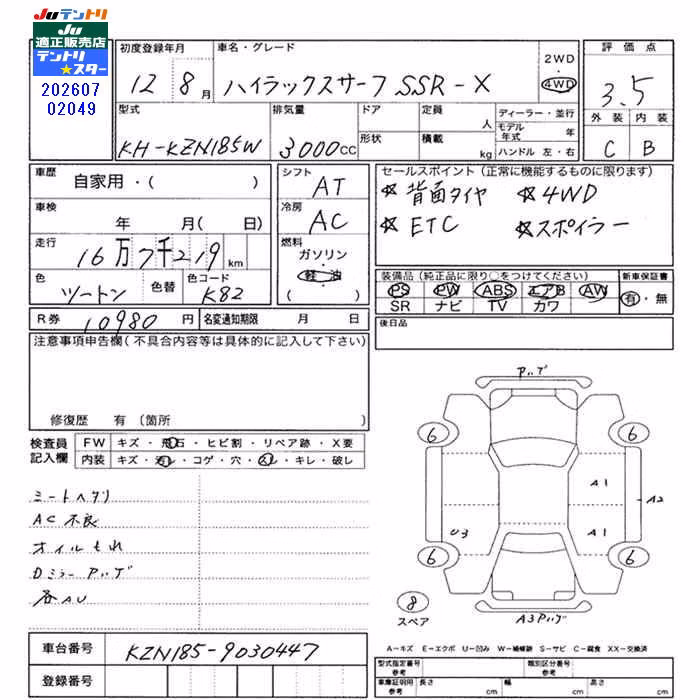 JUテントリ
JU
適正販売店
テントリ
★スター
202607
02049
初度登録年月
12年 8月
車名・グレード
ハイラックスサーフ SSR-X
2WD
・
4WD
評価点
3.5
外装 内装
C B
型式
KH-KZN185W
排気量
3000cc
ドア
形状
定員
人
積載
kg
ディーラー・並行
モデル年式 年
ハンドル 左・右
車歴
自家用・( )
車検
年 月( 日)
走行
16万7千219km
色
ツートン
色替
色コード
K82
シフト
AT
冷房
AC
燃料
ガソリン
・
軽油
( )
セールスポイント(正常に機能するものに限ります)
☆背面タイヤ ☆4WD
☆ETC ☆スポイラー
装備品(純正品に限り○をつけてください)
PS PW ABS エアB AW
SR ナビ TV カワ
新車保証書
有・無
R券 10980円
名変通知期限 月 日
後日品
注意事項申告欄(不具合内容等は具体的に記入して下さい)
修復歴 有(箇所 )
検査員
記入欄
FW キズ・飛石・ヒビ割・リペア跡・X要
内装 キズ・汚レ・コゲ・穴・スレ・キレ・破レ
シートヘタリ
AC不良
オイルもれ
Dミラー Pハゲ
各AU
Pハゲ
6 6
A1
A2
U3 A1
6 6
8
スペア
A3Pハゲ
A-キズ E-エクボ U-凹み W-補修跡 S-サビ C-腐食 XX-交換済
車台番号 KZN185-9030447
登録番号
型式指定番号
参考
類別区分番号
参考
車庫証明用
参考
長さ cm 幅 cm 高さ cm